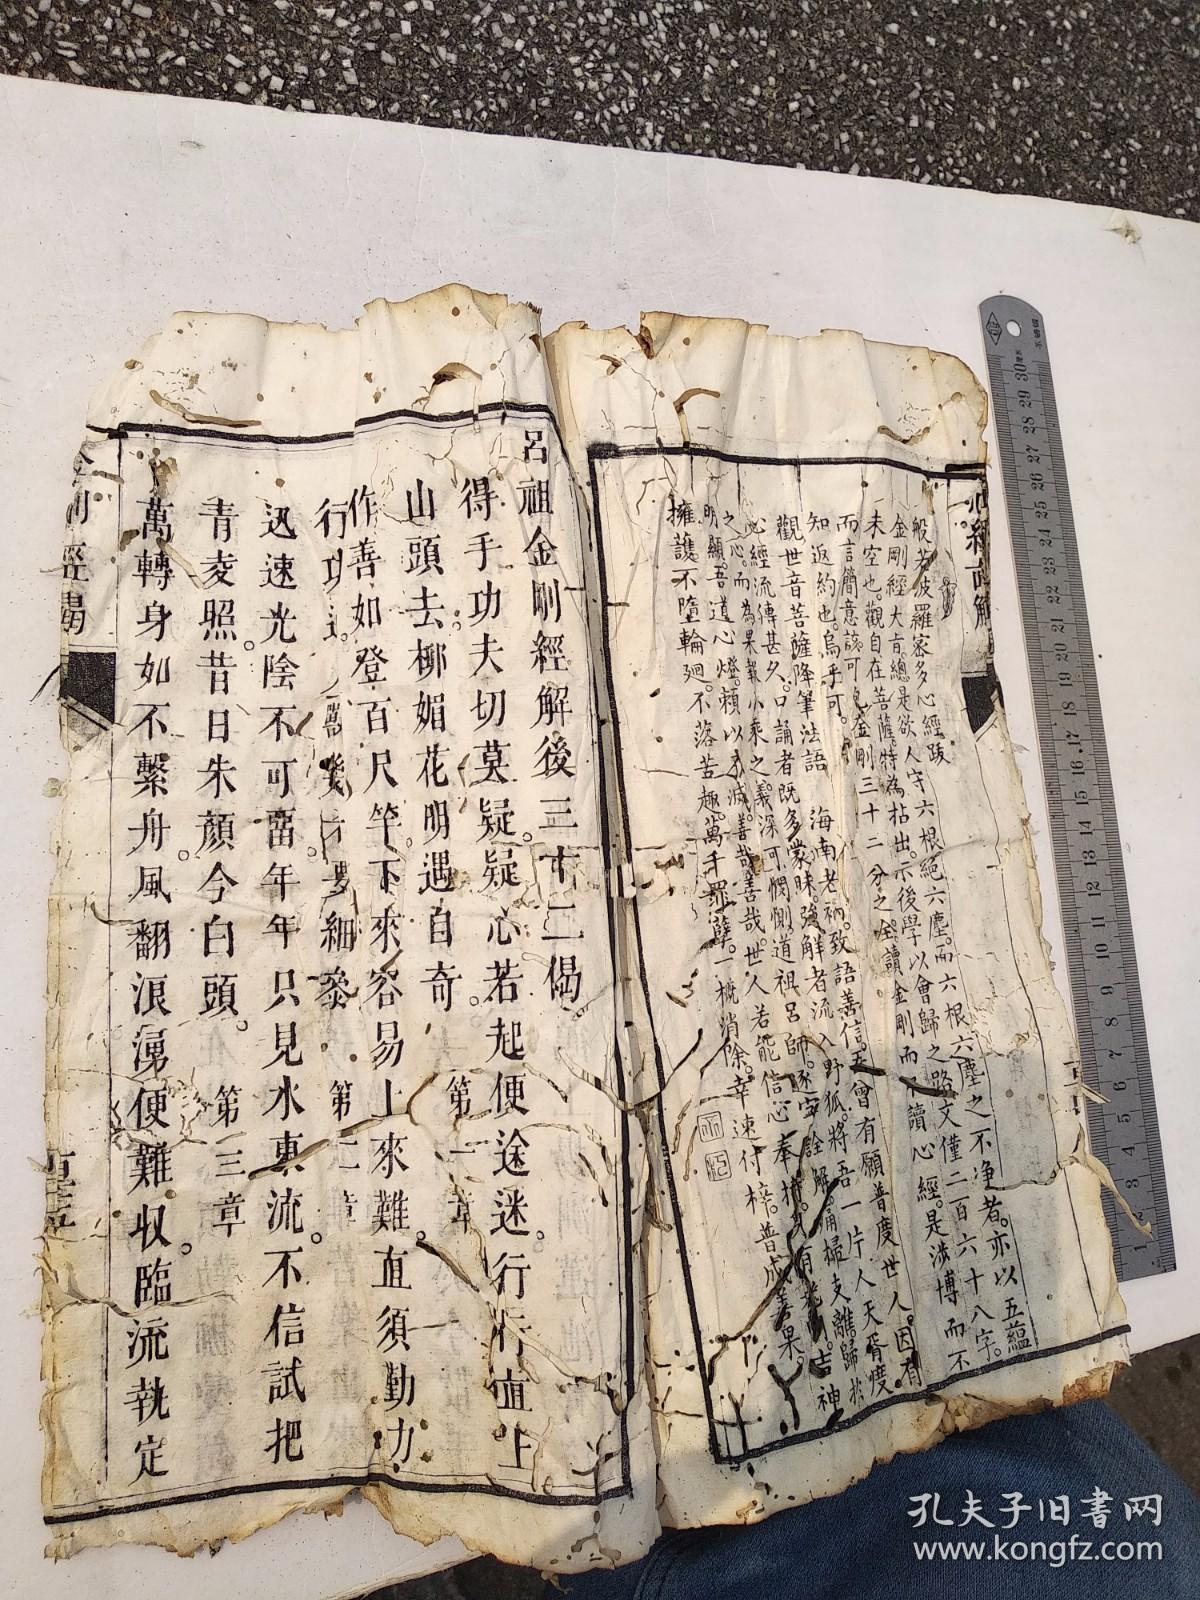 般若波羅密多心經跋
金剛經大旨。總是欲人守六根絕六塵。而六根六塵之不净者。亦以五蘊
未空也。觀自在菩薩。特為拈出。示後學以會歸之路。文僅二百六十八字。
而言簡意該。可見金剛三十二分之全。讀金剛而不讀心經。是涉博而不
知返約也。烏乎可。
觀世音菩薩降筆法語
海南老衲。致語善信。吾曾有願。普度世人。因有
心經流傳甚久。口誦者既多蒙昧。強解者流入野狐。將吾一片人天胥度
之心。而為果報小乘之義。深可憫惻。道祖呂師。逐字詮解。掃支離。歸於
明顯。吾道心燈。賴以不滅。善哉善哉。世人若能信心奉持。吉神
擁護。不墮輪廻。不落苦趣。萬千罪孽。一概消除。幸速付梓。普成善果。
呂祖金剛經解後三十二偈
得手功夫切莫疑。疑心若起便途迷。行行直上
山頭去。柳媚花明遇自奇。
第一章
作善如登百尺竿。下來容易上來難。直須勤力
行功
要細參
第二章
迅速光陰不可畱。年年只見水東流。不信試把
青夌照。昔日朱顏今白頭。
第三章
萬轉身如不繫舟。風翻浪湧便難収。臨流執定
金剛經偈
心經